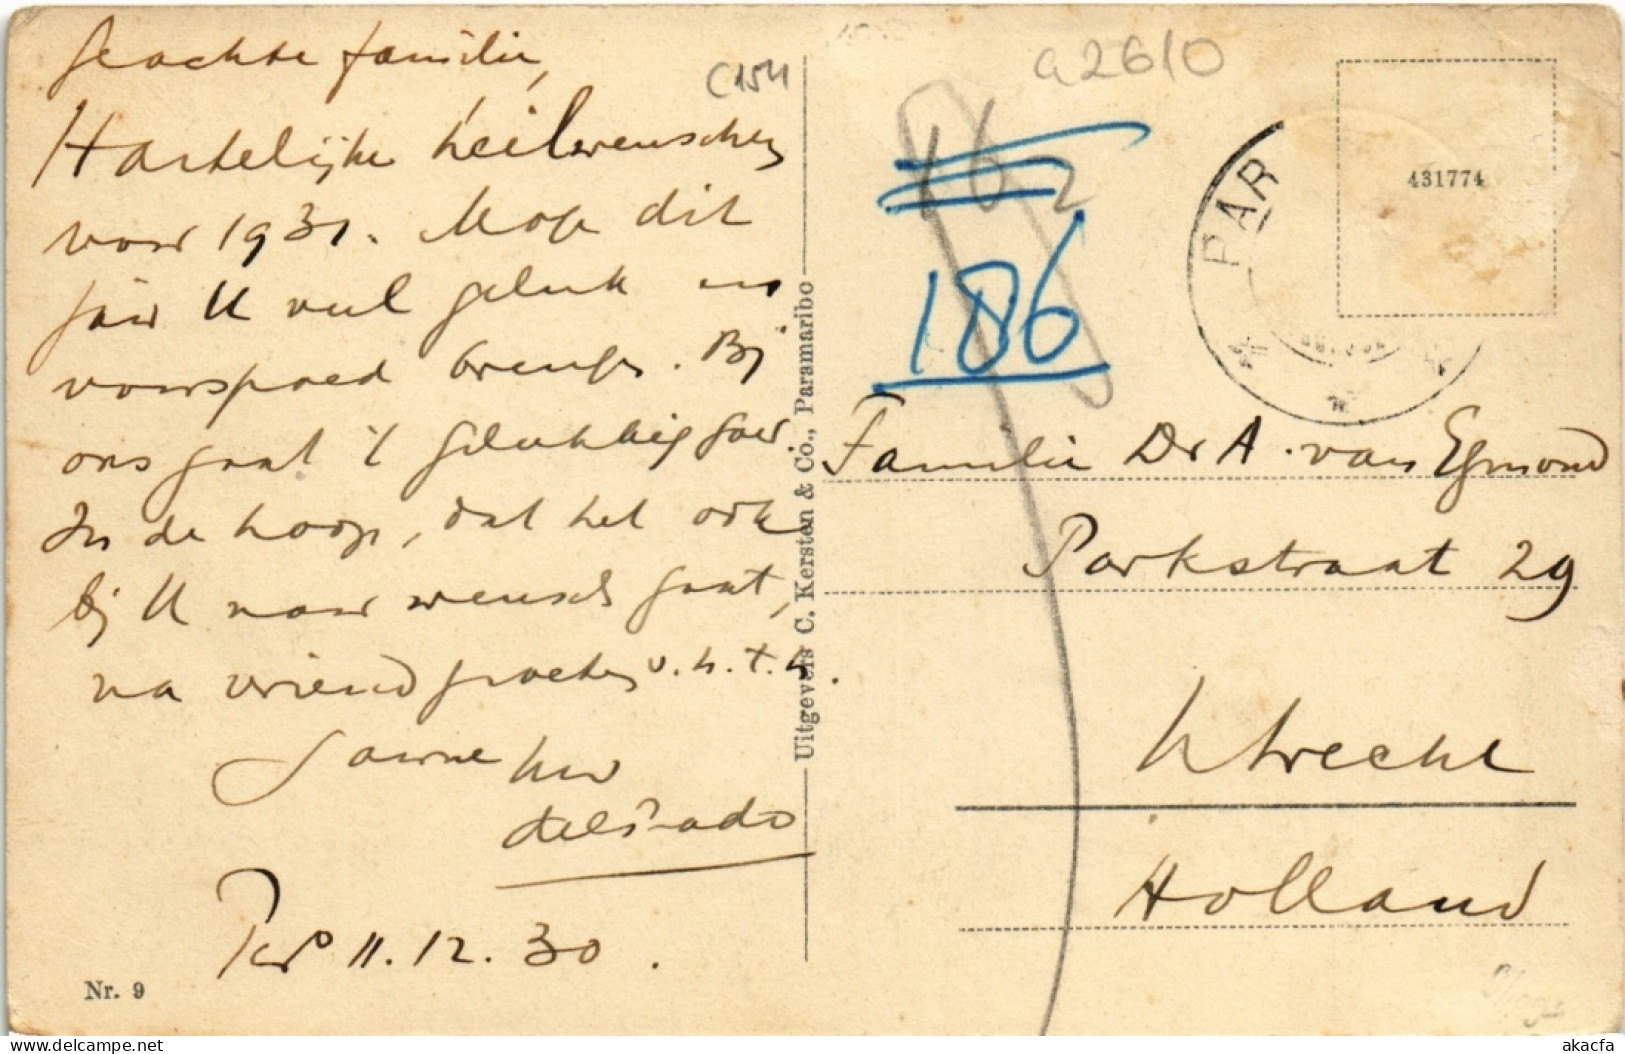 Geachte familie,
Hartelijke heilwenschen
voor 1931. Moge dit
jaar U veel geluk en
voorspoed brengen. Bij
ons gaat 't gelukkig goed.
In de hoop, dat het ook
bij U naar wensch gaat,
na vriend groeten v.h.t.h.
del Prado
Par° 11.12.30.
Nr. 9
C154
Uitgevers C. Kersten & Co., Paramaribo
a2610
162
186
PAR
431774
Familie Dr A. van Egmond
Parkstraat 29
Utrecht
Holland
akpool.de
akacfa